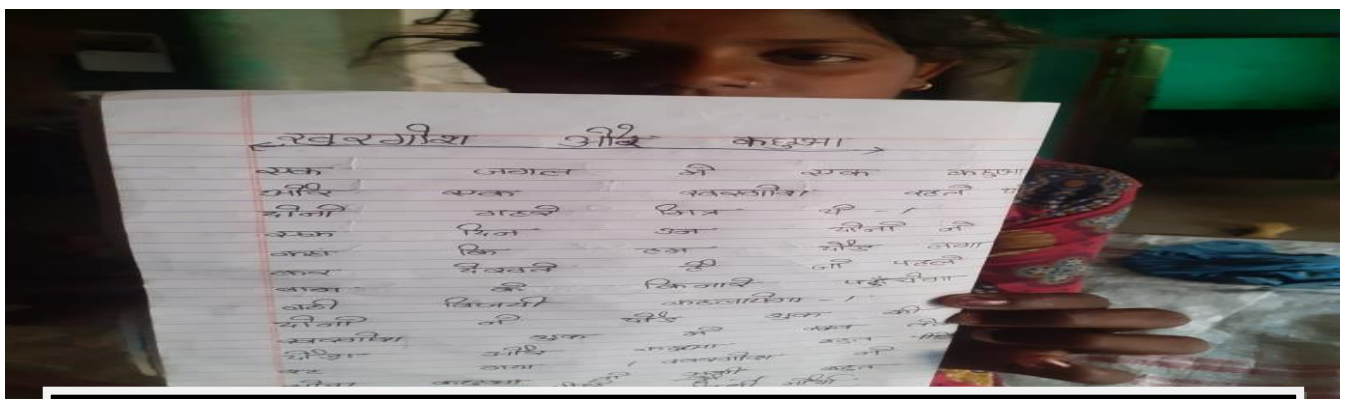 खरगोश और कछुआ
एक जगल मे एक कछुआ
और एक खरगोश रहते थे
दोनो गहरे मित्र थे -।
एक दिन उन दोनो ने
कहा कि हम दौड़ लगा
कर देखते है जो पहले
बाग के किनारे पहुंचेगा
वही विजयी कहलायेगा -।
दोनो ने दौड़ शुरू की
खरगोश शुरू मे बहुत
दौड़ा और कछुआ बहुत
रह गया । खरगोश ने
कछुआ